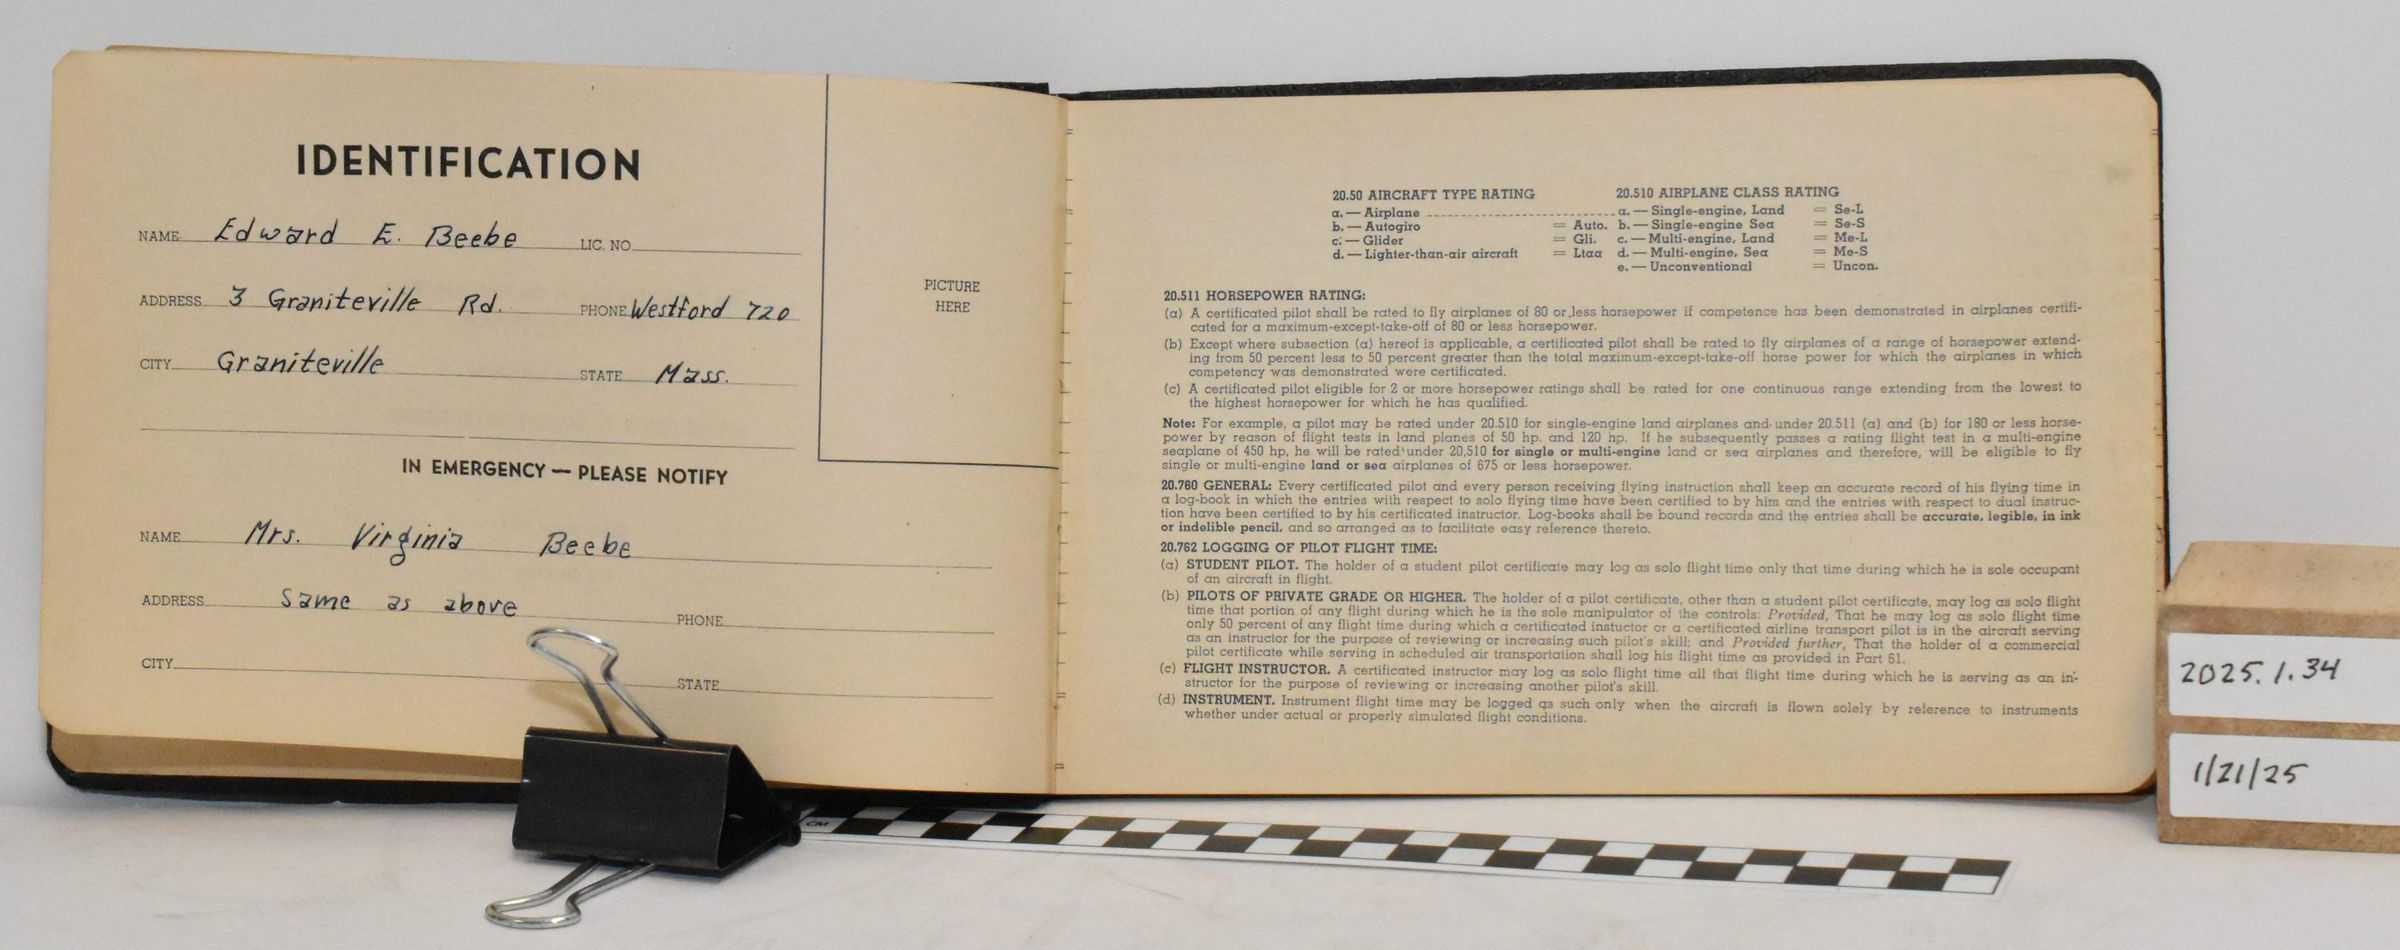 IDENTIFICATION
NAME Edward E. Beebe LIC. NO.
ADDRESS 3 Graniteville Rd. PHONE Westford 720
CITY Graniteville STATE Mass.
PICTURE
HERE
IN EMERGENCY — PLEASE NOTIFY
NAME Mrs. Virginia Beebe
ADDRESS Same as above PHONE
CITY STATE
20.50 AIRCRAFT TYPE RATING 20.510 AIRPLANE CLASS RATING
a. — Airplane a. — Single-engine, Land = Se-L
b. — Autogiro = Auto. b. — Single-engine Sea = Se-S
c. — Glider = Gli. c. — Multi-engine, Land = Me-L
d. — Lighter-than-air aircraft = Ltaa d. — Multi-engine, Sea = Me-S
e. — Unconventional = Uncon.
20.511 HORSEPOWER RATING:
(a) A certificated pilot shall be rated to fly airplanes of 80 or less horsepower if competence has been demonstrated in airplanes certifi-
cated for a maximum-except-take-off of 80 or less horsepower.
(b) Except where subsection (a) hereof is applicable, a certificated pilot shall be rated to fly airplanes of a range of horsepower extend-
ing from 50 percent less to 50 percent greater than the total maximum-except-take-off horse power for which the airplanes in which
competency was demonstrated were certificated.
(c) A certificated pilot eligible for 2 or more horsepower ratings shall be rated for one continuous range extending from the lowest to
the highest horsepower for which he has qualified.
Note: For example, a pilot may be rated under 20.510 for single-engine land airplanes and under 20.511 (a) and (b) for 180 or less horse-
power by reason of flight tests in land planes of 50 hp. and 120 hp. If he subsequently passes a rating flight test in a multi-engine
seaplane of 450 hp, he will be rated under 20,510 for single or multi-engine land or sea airplanes and therefore, will be eligible to fly
single or multi-engine land or sea airplanes of 675 or less horsepower.
20.760 GENERAL: Every certificated pilot and every person receiving flying instruction shall keep an accurate record of his flying time in
a log-book in which the entries with respect to solo flying time have been certified to by him and the entries with respect to dual instruc-
tion have been certified to by his certificated instructor. Log-books shall be bound records and the entries shall be accurate, legible, in ink
or indelible pencil, and so arranged as to facilitate easy reference thereto.
20.762 LOGGING OF PILOT FLIGHT TIME:
(a) STUDENT PILOT. The holder of a student pilot certificate may log as solo flight time only that time during which he is sole occupant
of an aircraft in flight.
(b) PILOTS OF PRIVATE GRADE OR HIGHER. The holder of a pilot certificate, other than a student pilot certificate, may log as solo flight
time that portion of any flight during which he is the sole manipulator of the controls: Provided, That he may log as solo flight time
only 50 percent of any flight time during which a certificated instuctor or a certificated airline transport pilot is in the aircraft serving
as an instructor for the purpose of reviewing or increasing such pilot's skill; and Provided further, That the holder of a commercial
pilot certificate while serving in scheduled air transportation shall log his flight time as provided in Part 61.
(c) FLIGHT INSTRUCTOR. A certificated instructor may log as solo flight time all that flight time during which he is serving as an in-
structor for the purpose of reviewing or increasing another pilot's skill.
(d) INSTRUMENT. Instrument flight time may be logged as such only when the aircraft is flown solely by reference to instruments
whether under actual or properly simulated flight conditions.
2025.1.34
1/21/25
CM